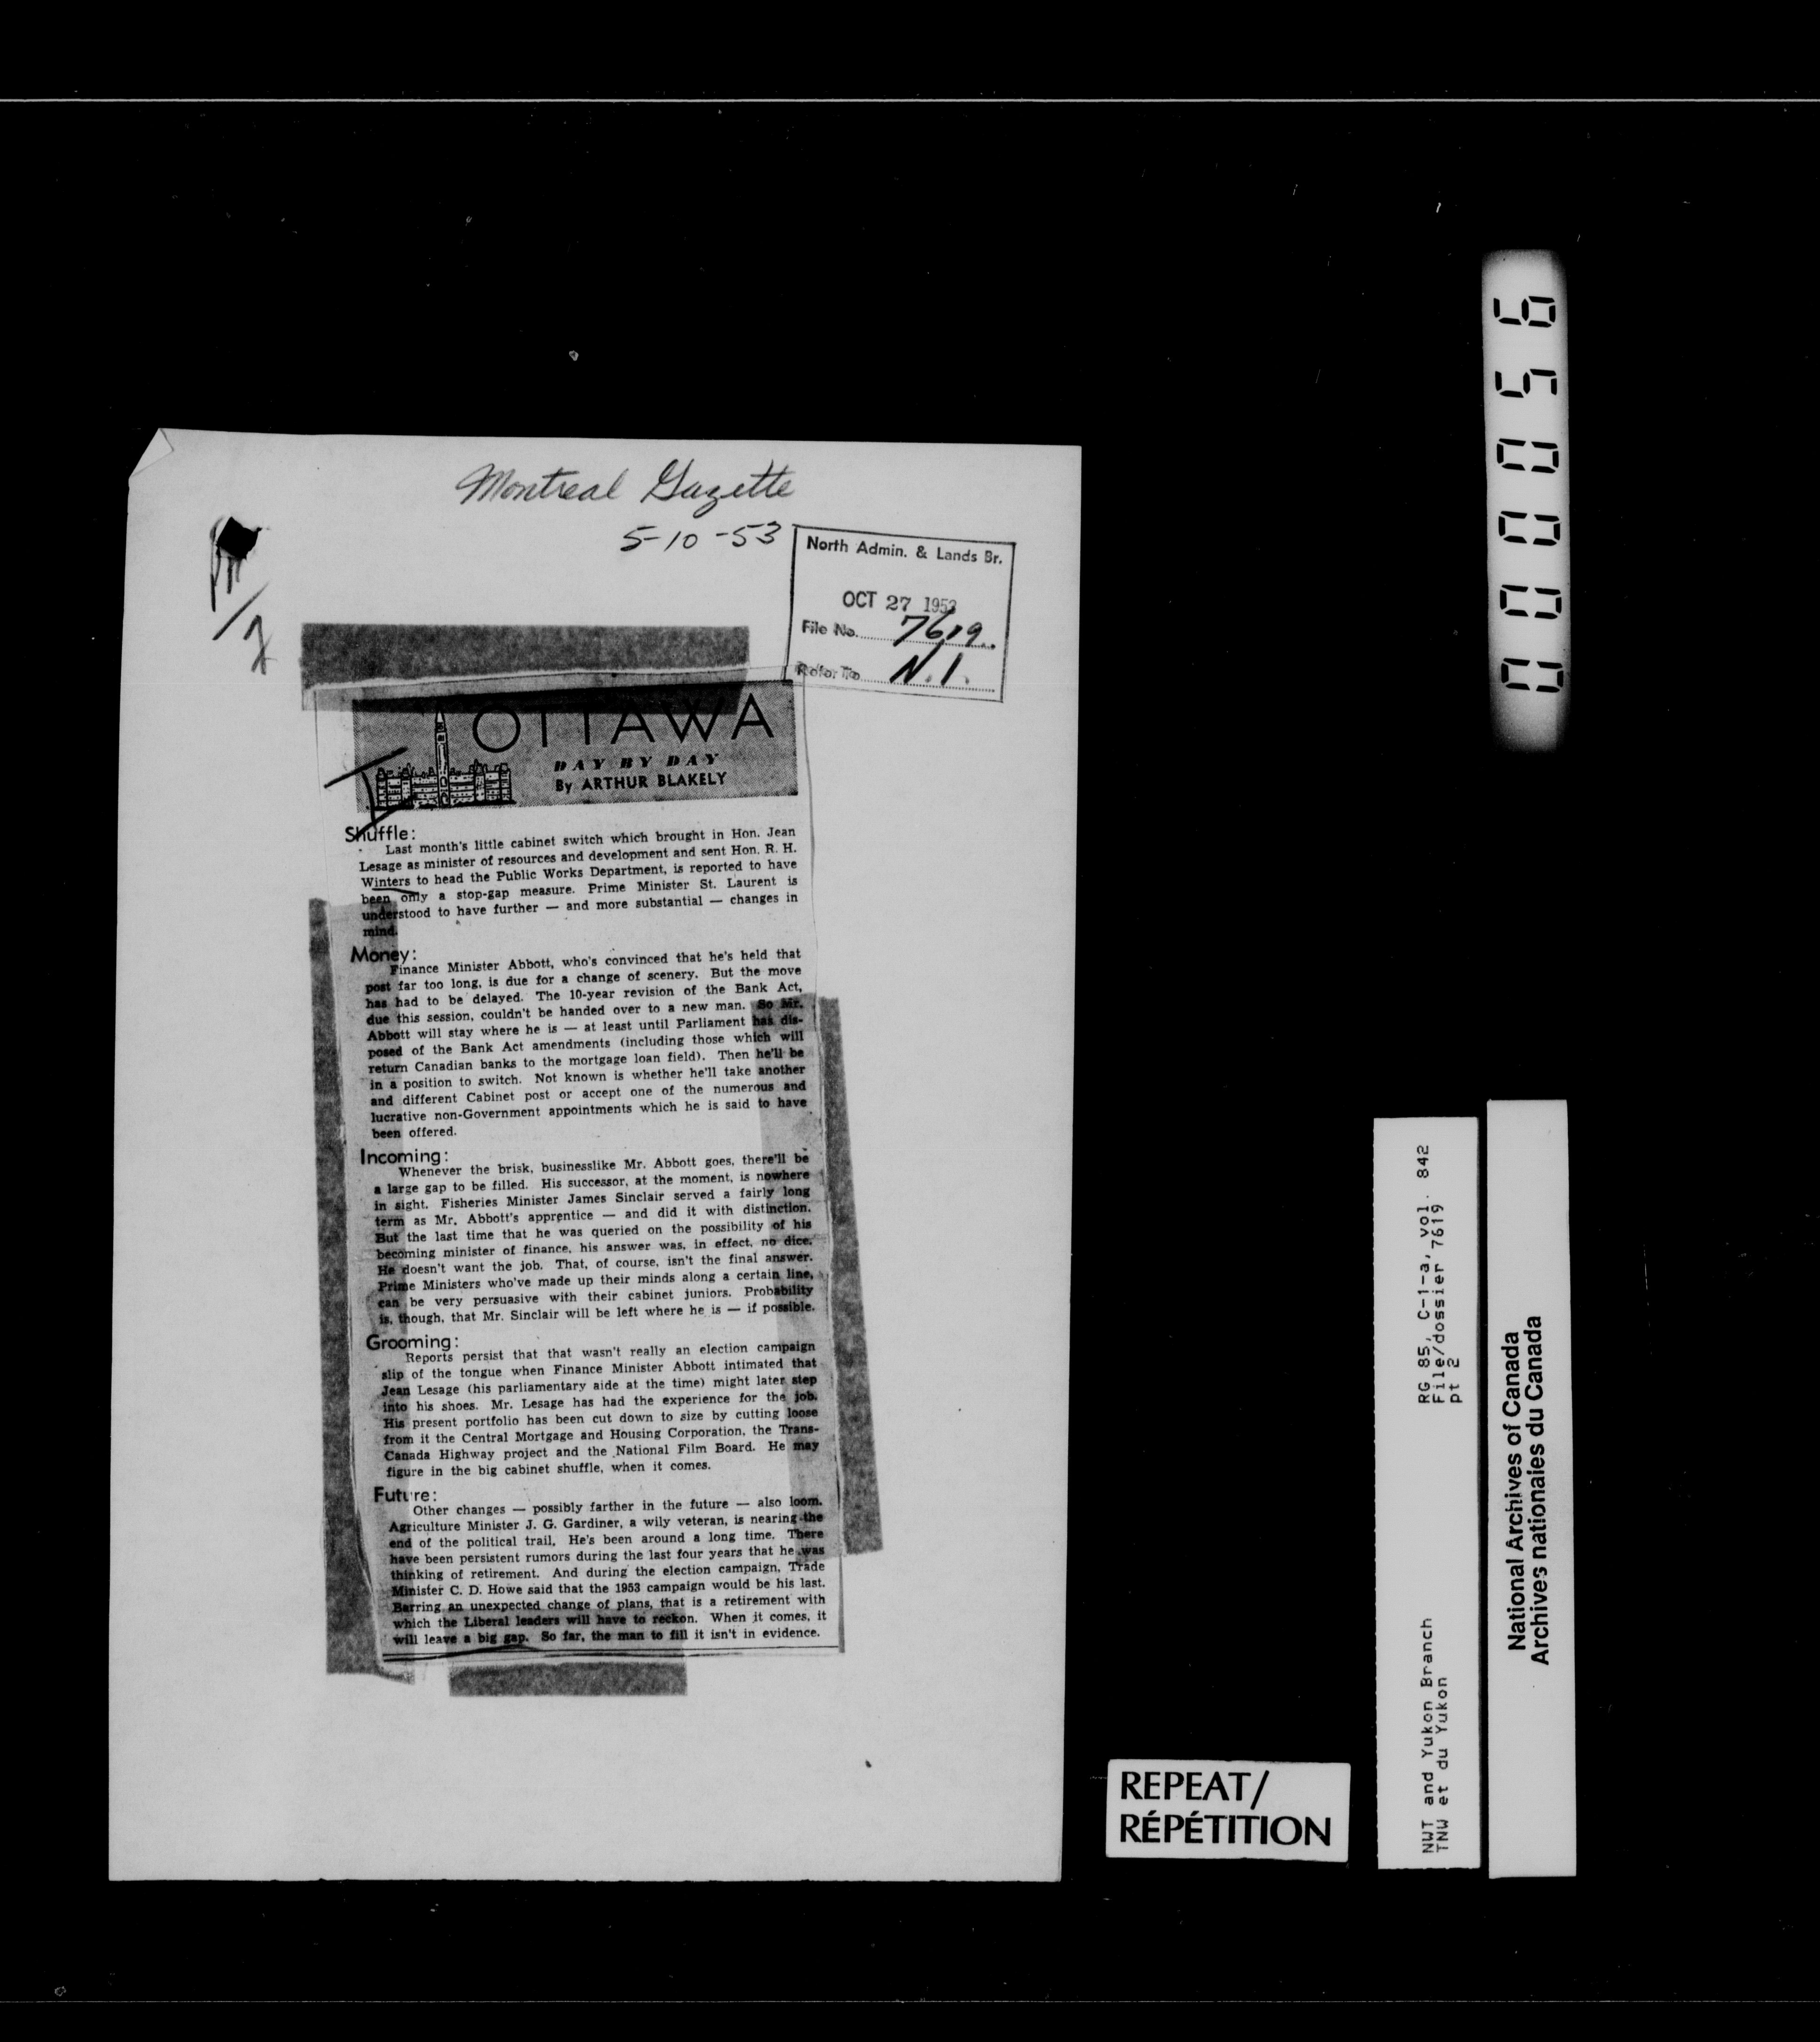 Montreal Gazette
5-10-53
North Admin. & Lands Br.
OCT 27 1953
File No. 7619
Refer To N.1.
OTTAWA
DAY BY DAY
By ARTHUR BLAKELY
Shuffle:
Last month's little cabinet switch which brought in Hon. Jean
Lesage as minister of resources and development and sent Hon. R. H.
Winters to head the Public Works Department, is reported to have
been only a stop-gap measure. Prime Minister St. Laurent is
understood to have further — and more substantial — changes in
mind.
Money:
Finance Minister Abbott, who's convinced that he's held that
post far too long, is due for a change of scenery. But the move
has had to be delayed. The 10-year revision of the Bank Act,
due this session, couldn't be handed over to a new man. So Mr.
Abbott will stay where he is — at least until Parliament has dis-
posed of the Bank Act amendments (including those which will
return Canadian banks to the mortgage loan field). Then he'll be
in a position to switch. Not known is whether he'll take another
and different Cabinet post or accept one of the numerous and
lucrative non-Government appointments which he is said to have
been offered.
Incoming:
Whenever the brisk, businesslike Mr. Abbott goes, there'll be
a large gap to be filled. His successor, at the moment, is nowhere
in sight. Fisheries Minister James Sinclair served a fairly long
term as Mr. Abbott's apprentice — and did it with distinction.
But the last time that he was queried on the possibility of his
becoming minister of finance, his answer was, in effect, no dice.
He doesn't want the job. That, of course, isn't the final answer.
Prime Ministers who've made up their minds along a certain line,
can be very persuasive with their cabinet juniors. Probability
is, though, that Mr. Sinclair will be left where he is — if possible.
Grooming:
Reports persist that that wasn't really an election campaign
slip of the tongue when Finance Minister Abbott intimated that
Jean Lesage (his parliamentary aide at the time) might later step
into his shoes. Mr. Lesage has had the experience for the job.
His present portfolio has been cut down to size by cutting loose
from it the Central Mortgage and Housing Corporation, the Trans-
Canada Highway project and the National Film Board. He may
figure in the big cabinet shuffle, when it comes.
Future:
Other changes — possibly farther in the future — also loom.
Agriculture Minister J. G. Gardiner, a wily veteran, is nearing the
end of the political trail. He's been around a long time. There
have been persistent rumors during the last four years that he was
thinking of retirement. And during the election campaign, Trade
Minister C. D. Howe said that the 1953 campaign would be his last.
Barring an unexpected change of plans, that is a retirement with
which the Liberal leaders will have to reckon. When it comes, it
will leave a big gap. So far, the man to fill it isn't in evidence.
REPEAT/
RÉPÉTITION
NWT and Yukon Branch
TNW et du Yukon
RG 85, C-1-a, vol. 842
File/dossier 7619
pt 2
National Archives of Canada
Archives nationales du Canada
000056